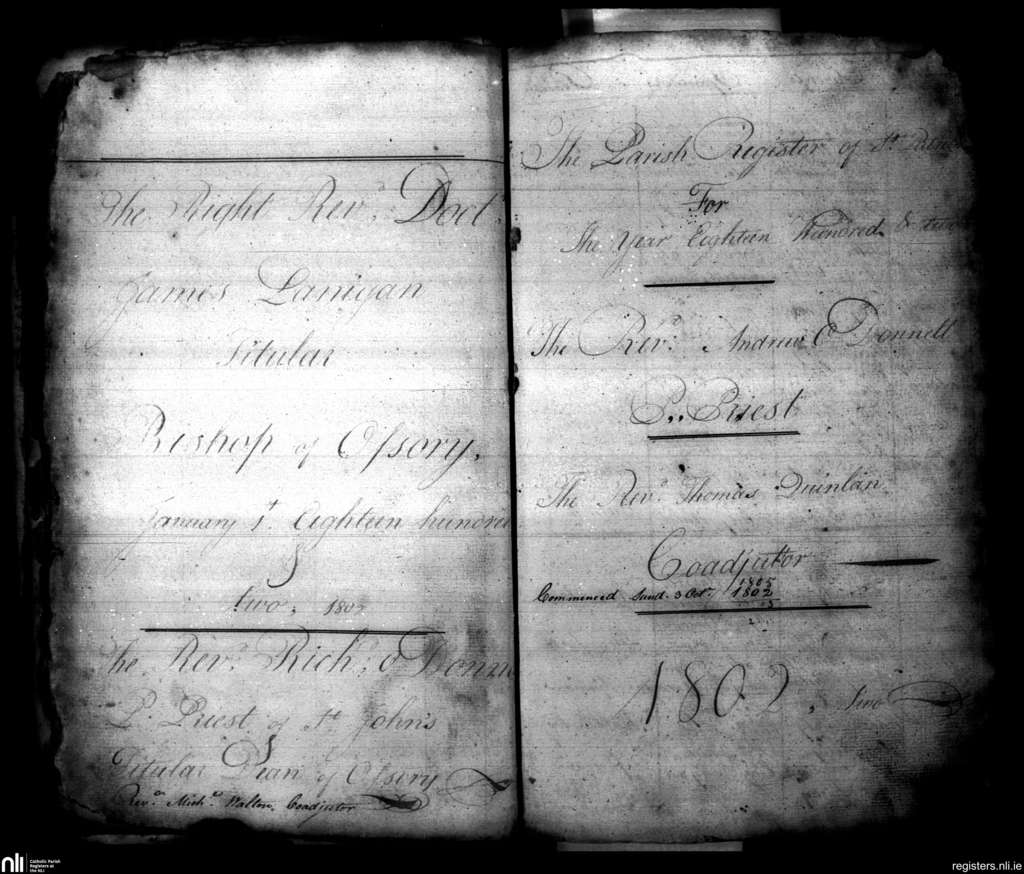 The Right Rev.d Doct.
James Lanigan
Titular
Bishop of Ossory,
January 1st. Eighteen hundred
&
two, 1802
The Rev.d Rich.d O Donn
P. Priest of St. John's
&
Titular Dean of Ossory
Rev.d Mich.l Walton, Coadjutor
The Parish Register of St.
For
The Year Eighteen Hundred & two
The Rev.d Andrew O Donnell
P.. Priest
The Rev.d Thomas Quinlan
Coadjuttor
1805
Commenced Sund. 3 Oct. 1802
1802, two
nli Catholic Parish Registers at the NLI
registers.nli.ie